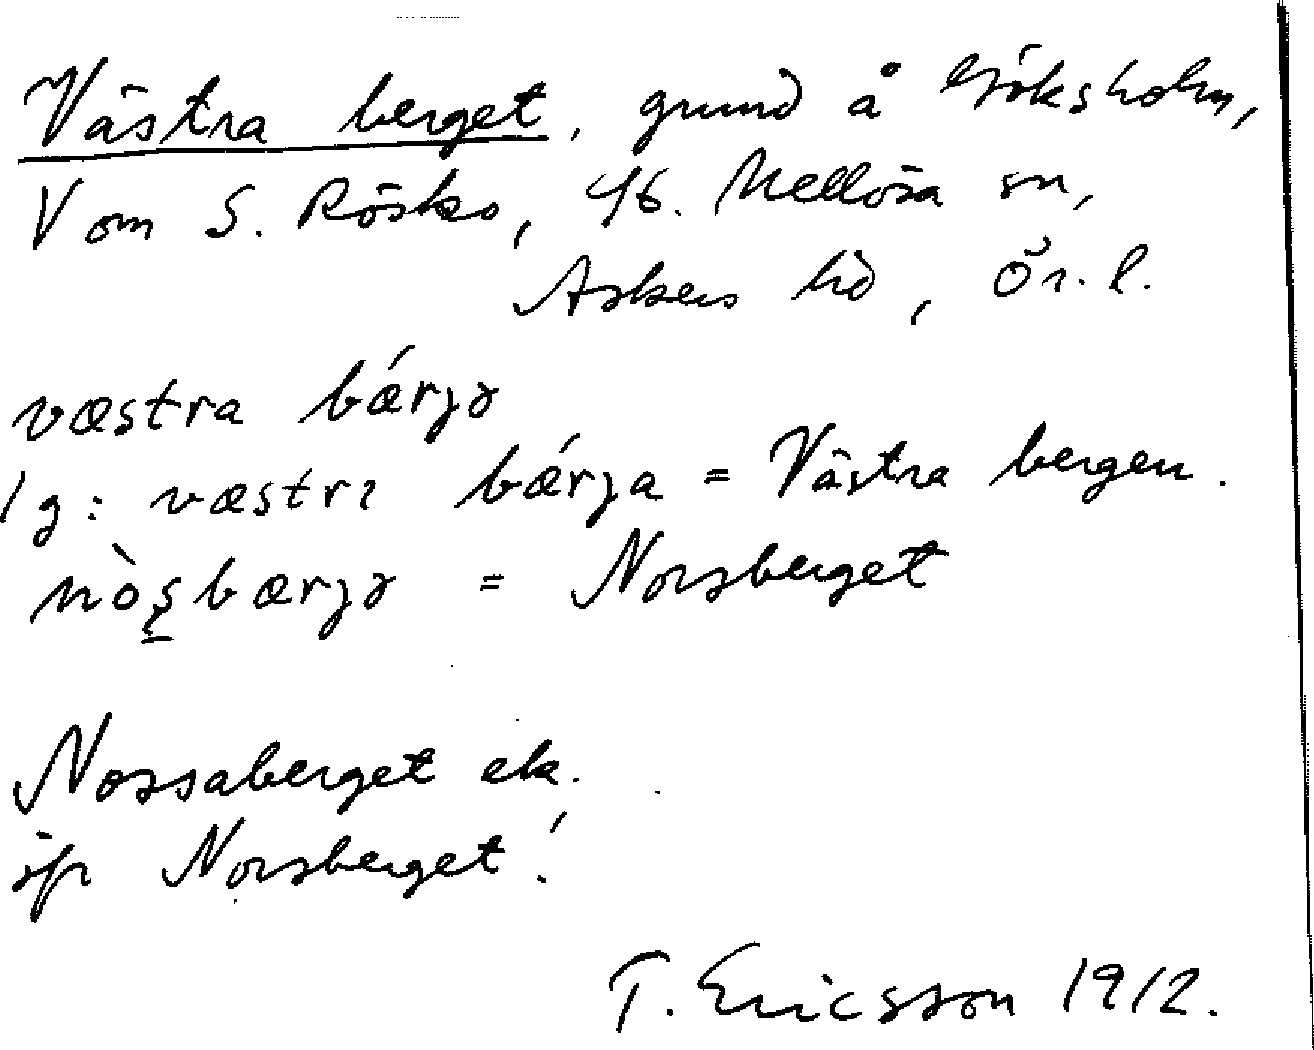 Västra berget, grund å Göksholm,
V om S. Rösko, St. Mellösa sn,
Askers hd, Ör. l.
væstra bǽrjə
/ g: væstrɩ bǽrja = Västra bergen.
nòʂbærjə = Norsberget
Nossaberget ek.
jfr Norsberget!
T. Ericsson 1912.